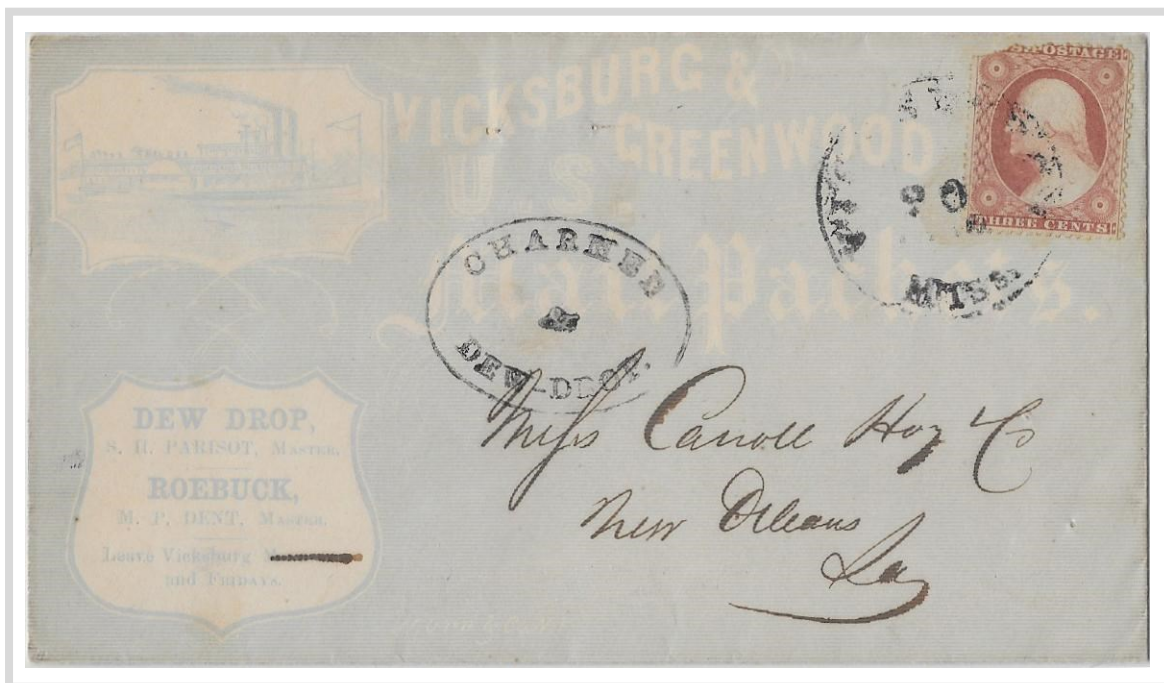 VICKSBURG &
GREENWOOD
U. S.
Mail Packets.
U.S. POSTAGE
THREE CENTS
20
MISS.
CHARMER
&
DEW-DROP.
DEW DROP,
S. H. PARISOT, MASTER.
ROEBUCK,
M. P. DENT, MASTER.
Leave Vicksburg
and FRIDAYS.
Messs Carroll Hoy & Co
New Orleans
La